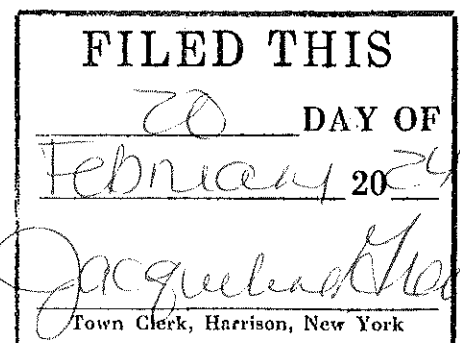 FILED THIS
20 DAY OF
February 2024
Town Clerk, Harrison, New York